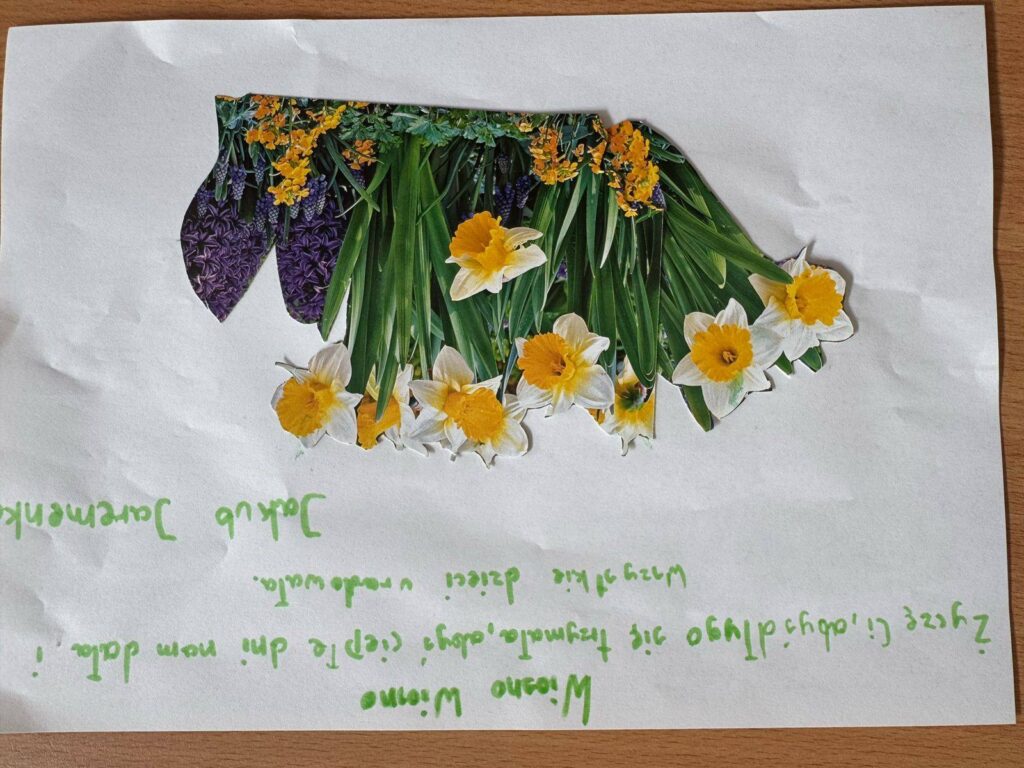 Wiosno Wiosno
Życzę Ci, abyś długo się trzymała, abyś ciepłe dni nam dała i
wszystkie dzieci uradowała.
Jakub Jaremenk